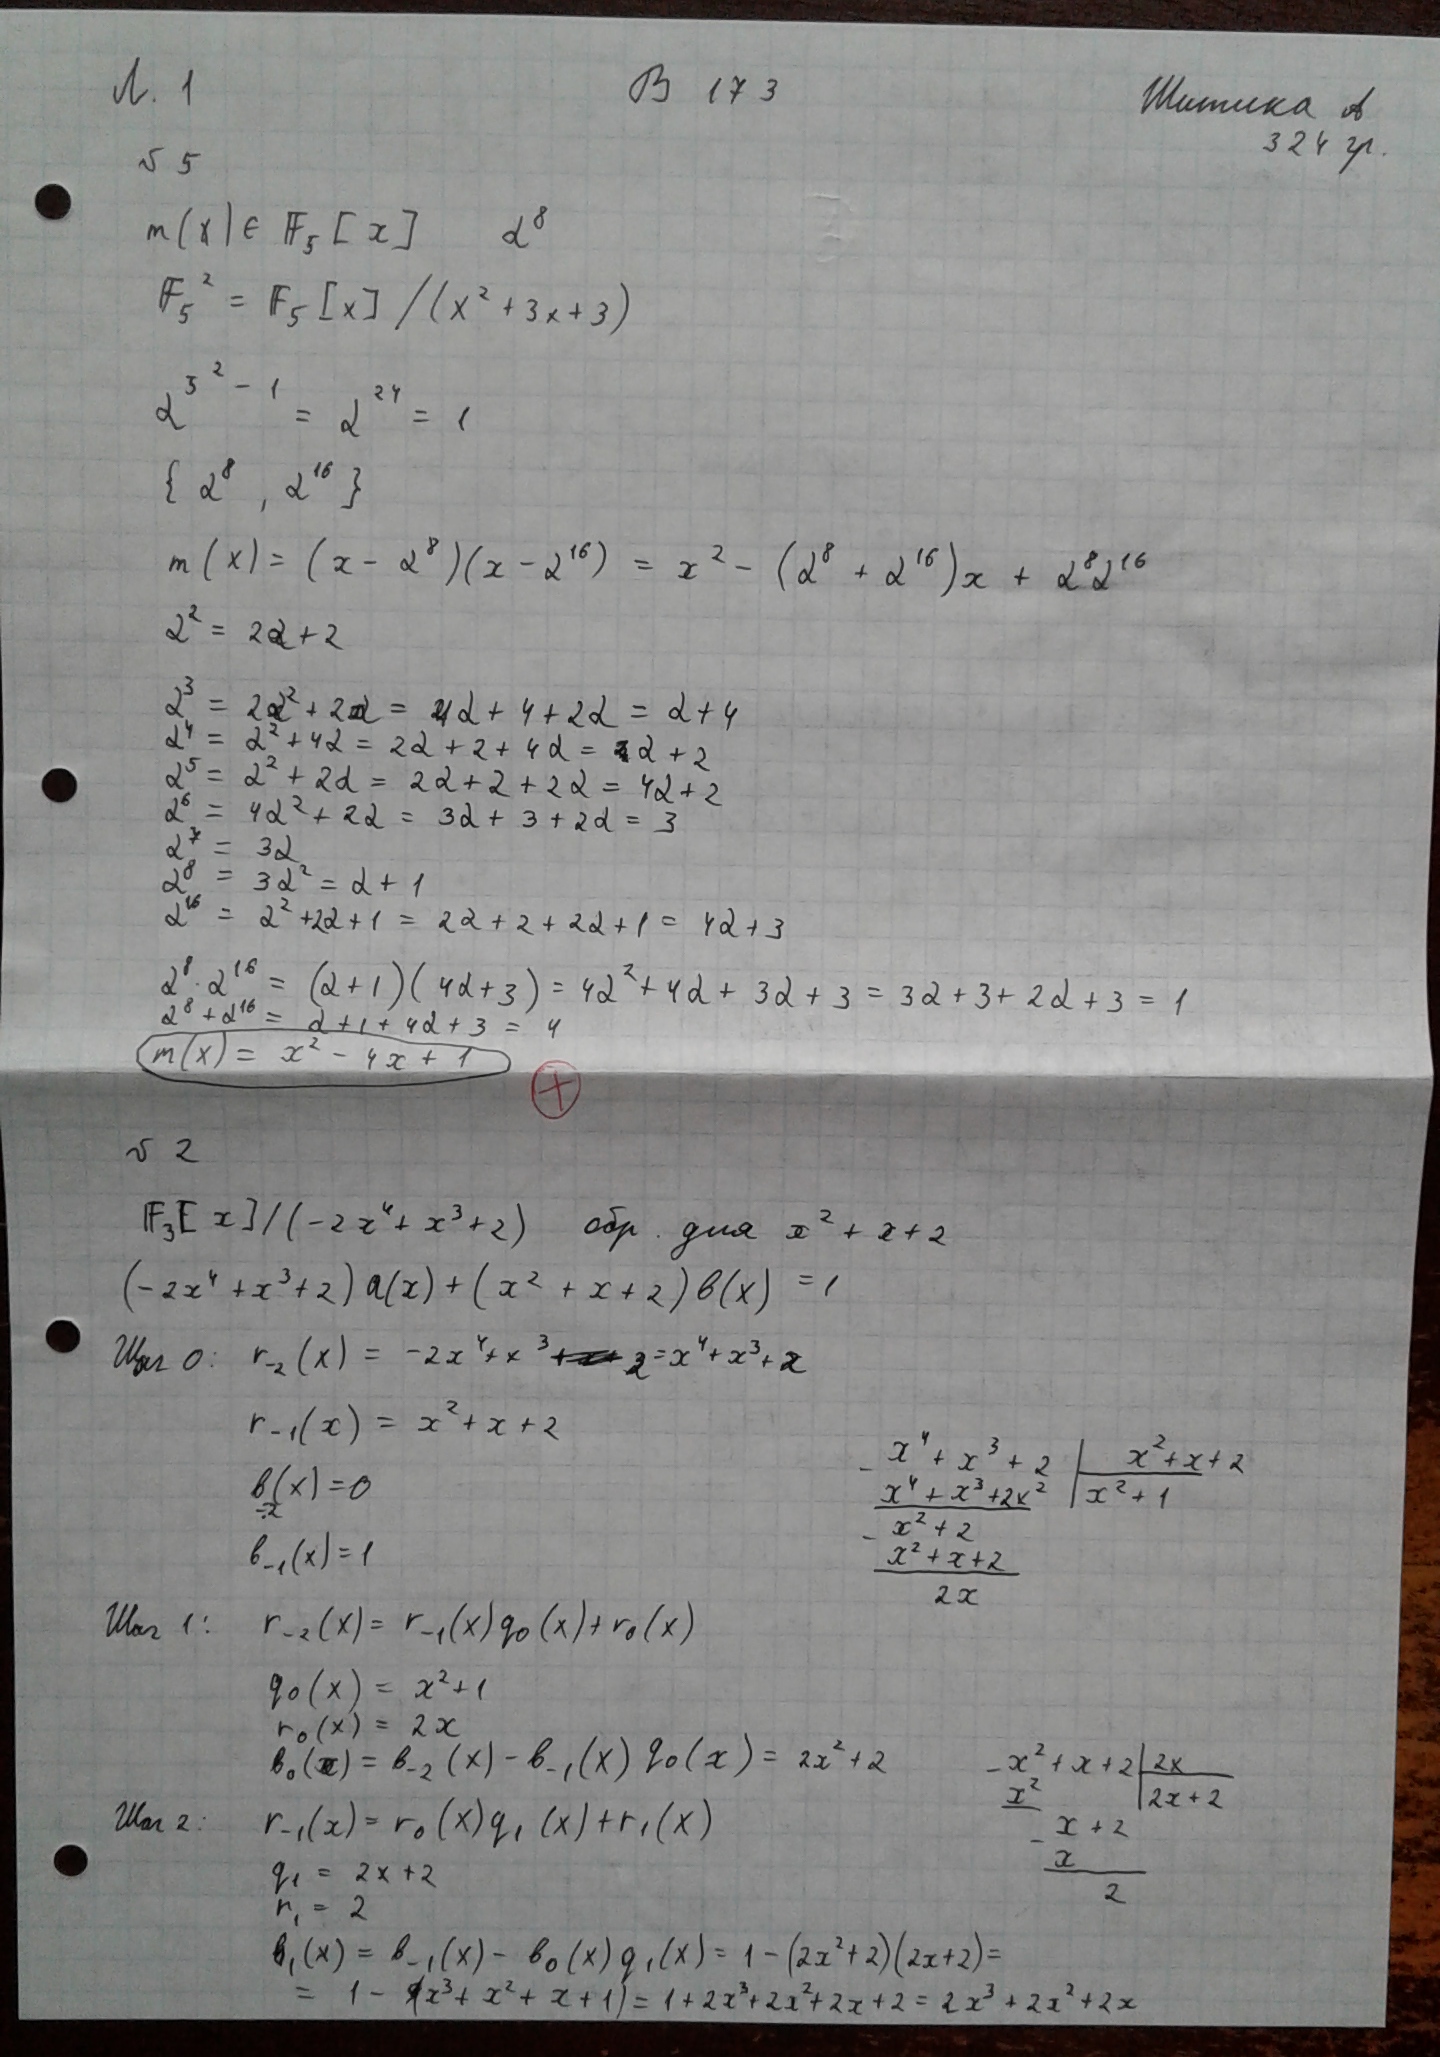 Л. 1 В 173 Шитика А
324 гр.
№ 5
m(x) ∈ F₅[x] α⁸
F₅² = F₅[x]/(x² + 3x + 3)
α^(5² - 1) = α²⁴ = 1
{ α⁸, α¹⁶ }
m(x) = (x - α⁸)(x - α¹⁶) = x² - (α⁸ + α¹⁶)x + α⁸α¹⁶
α² = 2α + 2
α³ = 2α² + 2α = 4α + 4 + 2α = α + 4
α⁴ = α² + 4α = 2α + 2 + 4α = α + 2
α⁵ = α² + 2α = 2α + 2 + 2α = 4α + 2
α⁶ = 4α² + 2α = 3α + 3 + 2α = 3
α⁷ = 3α
α⁸ = 3α² = α + 1
α¹⁶ = α² + 2α + 1 = 2α + 2 + 2α + 1 = 4α + 3
α⁸ · α¹⁶ = (α + 1)(4α + 3) = 4α² + 4α + 3α + 3 = 3α + 3 + 2α + 3 = 1
α⁸ + α¹⁶ = α + 1 + 4α + 3 = 4
m(x) = x² - 4x + 1
+
№ 2
F₃[x]/(-2x⁴ + x³ + 2) обр. для x² + x + 2
(-2x⁴ + x³ + 2) a(x) + (x² + x + 2) b(x) = 1
Шаг 0: r₋₂(x) = -2x⁴ + x³ + 2 = x⁴ + x³ + 2
r₋₁(x) = x² + x + 2
b₋₂(x) = 0
b₋₁(x) = 1
- x⁴ + x³ + 2 | x² + x + 2
x⁴ + x³ + 2x² | x² + 1
- x² + 2
x² + x + 2
2x
Шаг 1: r₋₂(x) = r₋₁(x) q₀(x) + r₀(x)
q₀(x) = x² + 1
r₀(x) = 2x
b₀(x) = b₋₂(x) - b₋₁(x) q₀(x) = 2x² + 2
- x² + x + 2 | 2x
x² | 2x + 2
- x + 2
x
2
Шаг 2: r₋₁(x) = r₀(x) q₁(x) + r₁(x)
q₁ = 2x + 2
r₁ = 2
b₁(x) = b₋₁(x) - b₀(x) q₁(x) = 1 - (2x² + 2)(2x + 2) =
= 1 - (x³ + x² + x + 1) = 1 + 2x³ + 2x² + 2x + 2 = 2x³ + 2x² + 2x